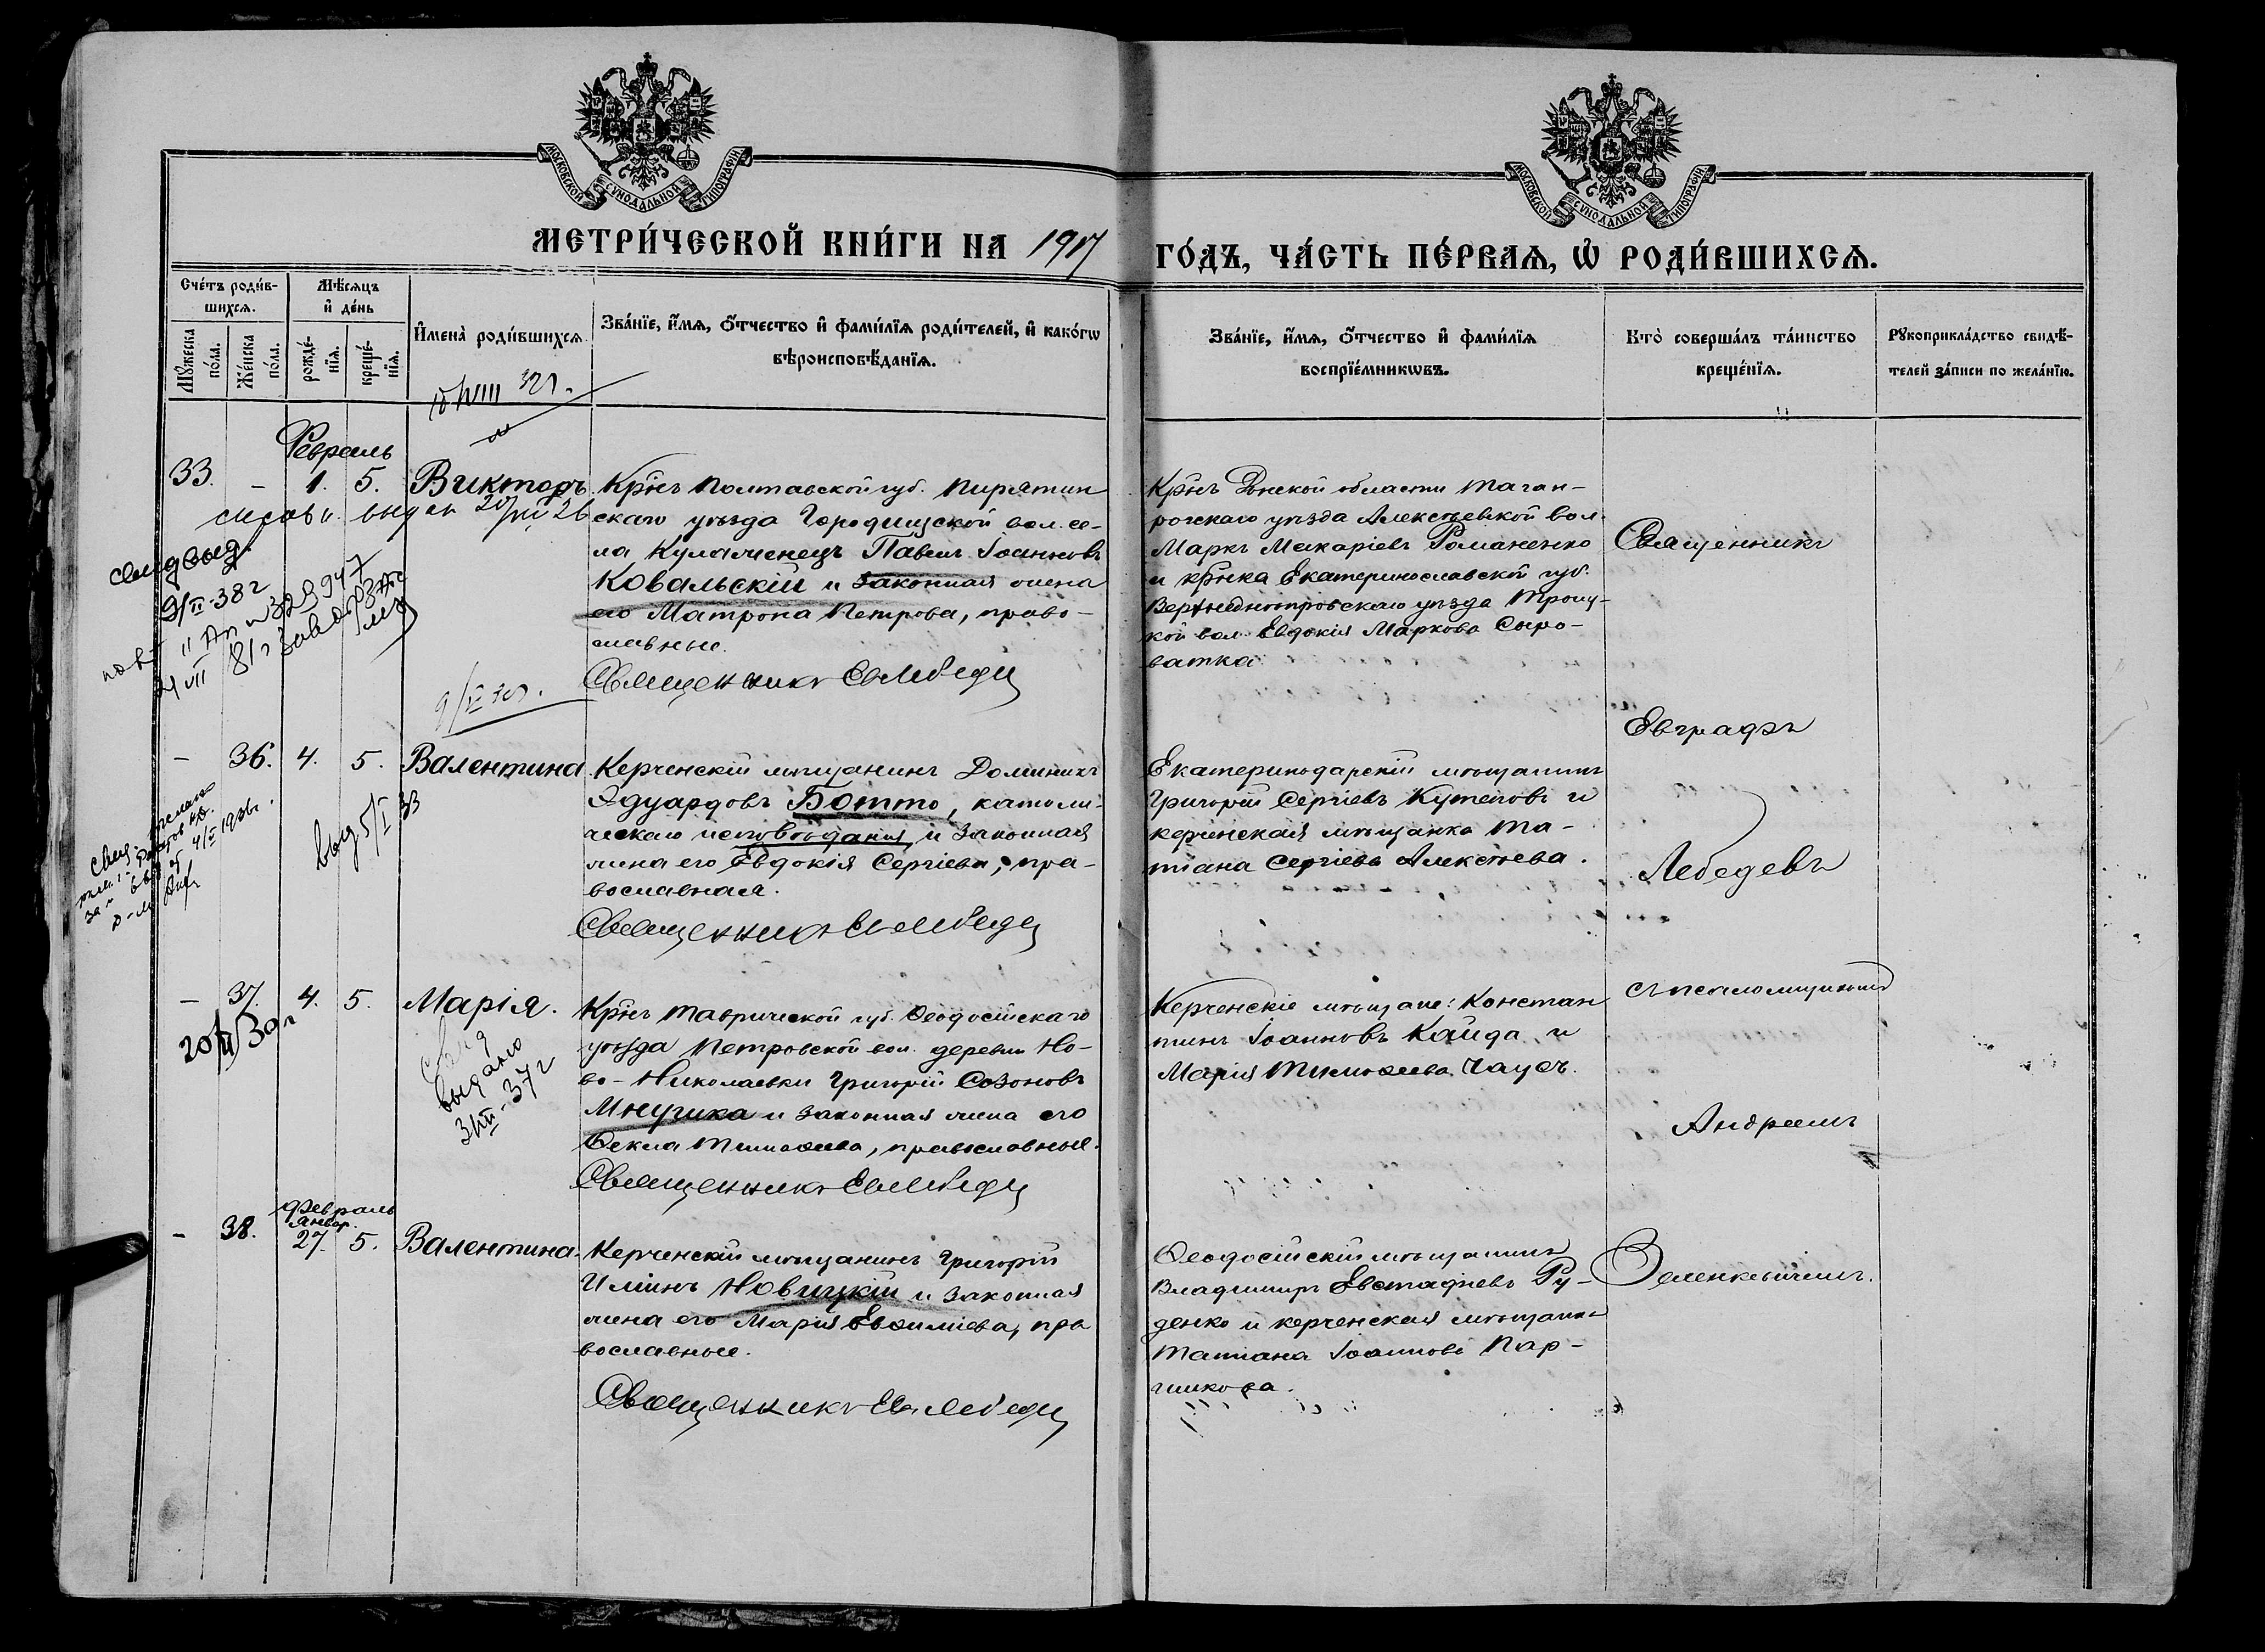 МОСКОВСКОЙ СѴНОДАЛЬНОЙ ТИПОГРАФІИ
МОСКОВСКОЙ СѴНОДАЛЬНОЙ ТИПОГРАФІИ
МЕТРИ́ЧЕСКОЙ КНИ́ГИ НА 1917
ГО́ДЪ, ЧА́СТЬ ПЕ́РВАѦ, Ѽ РОДИ́ВШИХСѦ.
Сче́тъ роди́в-
шихсѧ.
Мꙋжеска по́ла.
Же́нска по́ла.
Мѣ́сѧцъ
и҆ де́нь
рожде́-
нїѧ.
креще́-
нїѧ.
И҆мена̀ роди́вшихсѧ
Зва́нїе, и҆́мѧ, ѻ҆́тчество и҆ фами́лїѧ роди́телей, и҆ како́гѡ
вѣроисповѣ́данїѧ.
Зва́нїе, и҆́мѧ, ѻ҆́тчество и҆ фами́лїѧ
воспрїе́мникѡвъ.
Кто̀ соверша́лъ та́инство
креще́нїѧ.
Рꙋкоприкла́дство свидѣ́-
телей за́писи по жела́нїю.
Февраль
33. - 1. 5. Викторъ
Кр-нъ Полтавской губ. Пирятин
скаго уѣзда Городищской вол. се-
ла Павелъ Іоанновъ
Ковальскій и законная жена
его Матрона Петрова, право-
славные.
Священникъ Ев Лебеде
Кр-нъ Донской области Таган-
рогскаго уѣзда Алексѣевской вол.
Маркъ Макаріевъ Романенко
и кр-нка Екатеринославской губ.
Верхнеднѣпровскаго уѣзда Троиц-
кой вол. Евдокія Маркова Сыро-
ватка.
Священникъ
Евграфъ
Лебедевъ
съ псаломщикомъ
Андреемъ
Зеленкевичемъ.
9/II-38 г
- 36. 4. 5. Валентина
выд. 5/I 33
Керченскій мѣщанинъ Доминикъ
Эдуардовъ Ботто, католи-
ческаго исповѣданія, и законная
жена его Евдокія Сергіева, пра-
вославная.
Священникъ Ев Лебеде
Екатеринодарскій мѣщанинъ
Григорій Сергіевъ Кутеповъ и
керченская мѣщанка Та-
тіана Сергіева Алексѣева.
- 37. 4. 5. Марія.
выдано
Кр-нъ Таврической губ. Ѳеодосійскаго
уѣзда Петровской вол. деревни Но-
во-Николаевки Григорій Созоновъ
Мнугика и законная жена его
Ѳекла Тимоѳеева, православные.
Священникъ Ев Лебеде
Керченскіе мѣщане: Констан
тинъ Іоанновъ Кайда и
Марія Тимоѳеева Чаусъ.
Февраль
Январ.
- 38. 27. 5. Валентина.
Керченскій мѣщанинъ Григорій
Иліинъ Новицкій и законная
жена его Марія Евѳиміева, пра
вославные.
Священникъ Ев Лебеде
Ѳеодосійскій мѣщанинъ
Владиміръ Евстафіевъ Ру-
денко и керченская мѣщанка
Татіана Іоаннова Пар-